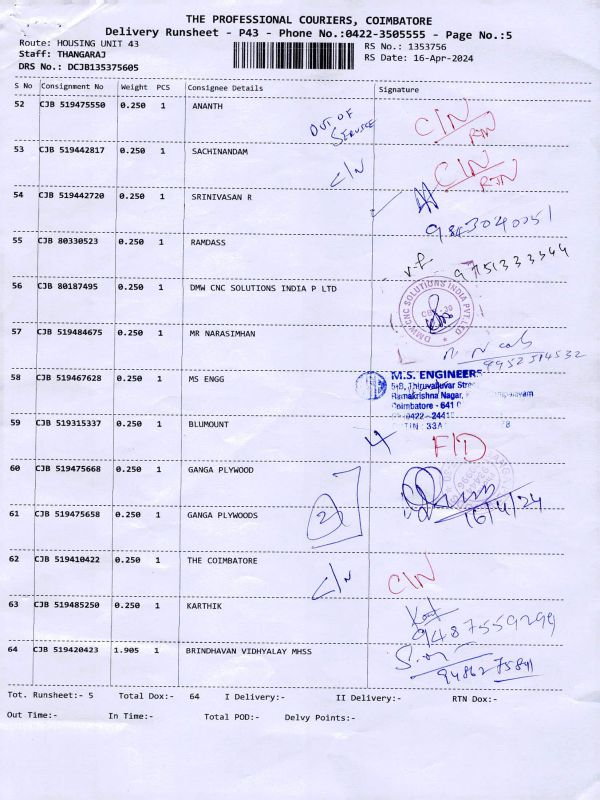 THE PROFESSIONAL COURIERS, COIMBATORE
Delivery Runsheet - P43 - Phone No.:0422-3505555 - Page No.:5
Route: HOUSING UNIT 43
RS No.: 1353756
Staff: THANGARAJ
RS Date: 16-Apr-2024
DRS No.: DCJB135375605
S No Consignment No Weight PCS Consignee Details Signature
52 CJB 519475550 0.250 1 ANANTH
OUT OF SERVICE
C/N
RTN
53 CJB 519442817 0.250 1 SACHINANDAM
C/N
C/N
RTN
54 CJB 519442720 0.250 1 SRINIVASAN R
9843040051
55 CJB 80330523 0.250 1 RAMDASS
9751333344
56 CJB 80187495 0.250 1 DMW CNC SOLUTIONS INDIA P LTD
DMW CNC SOLUTIONS INDIA PVT LTD
57 CJB 519484675 0.250 1 MR NARASIMHAN
9952514532
58 CJB 519467628 0.250 1 MS ENGG
M.S. ENGINEERS
5-B, Thiruvalluvar Street
Ramakrishna Nagar,
Coimbatore - 641 0
0422 - 2441
59 CJB 519315337 0.250 1 BLUMOUNT
F/D
60 CJB 519475668 0.250 1 GANGA PLYWOOD
16/4/24
61 CJB 519475658 0.250 1 GANGA PLYWOODS
2
62 CJB 519410422 0.250 1 THE COIMBATORE
C/N
C/N
63 CJB 519485250 0.250 1 KARTHIK
9487559299
64 CJB 519420423 1.905 1 BRINDHAVAN VIDHYALAY MHSS
9486275841
Tot. Runsheet:- 5 Total Dox:- 64 I Delivery:- II Delivery:- RTN Dox:-
Out Time:- In Time:- Total POD:- Delvy Points:-